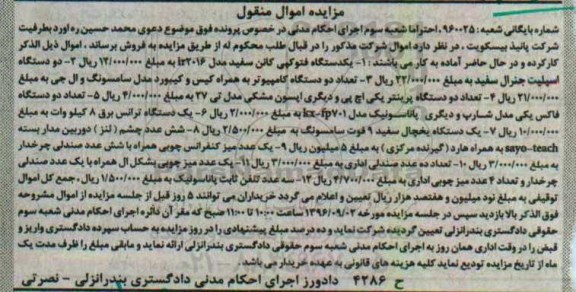 مزایده اموال منقول
شماره بایگانی شعبه: ۹۶۰۰۲۵، احتراما شعبه سوم اجرای احکام مدنی در خصوص پرونده فوق موضوع دعوی محمد حسین ره آورد بطرفیت
شرکت پانیذ بیسکویت، در نظر دارد اموال شرکت مذکور را در قبال طلب محکوم له از طریق مزایده به فروش برساند، اموال ذیل الذکر
کارکرده و در حال حاضر آماده به کار می باشند: ۱- یکدستگاه فتوکپی کانن سفید مدل ir۲۰۱۶ به مبلغ ۱۲/۰۰۰/۰۰۰ ریال ۲- دو دستگاه
اسپلیت جنرال سفید به مبلغ ۲۲/۰۰۰/۰۰۰ ریال ۳- تعداد دو دستگاه کامپیوتر به همراه کیس و کیبورد مدل سامسونگ و ال جی به مبلغ
۲۱/۰۰۰/۰۰۰ ریال ۴- تعداد دو دستگاه پرینتر یکی اچ پی و دیگری اپسون مشکی مدل تی ۲۷ به مبلغ ۴/۰۰۰/۰۰۰ ریال ۵- تعداد دو دستگاه
فاکس یکی مدل شارپ و دیگری پاناسونیک مدل kx-fp۷۰۱ به مبلغ ۲/۰۰۰/۰۰۰ ریال ۶- یک دستگاه ترانس برق ۸ کیلو وات به مبلغ
۱۰/۰۰۰/۰۰۰ ریال ۷- یک دستگاه یخچال سفید ۹ فوت سامسونگ به مبلغ ۲/۵۰۰/۰۰۰ ریال ۸- شش عدد چشم (لنز) دوربین مدار بسته
sayo-teach به همراه هارد (گیرنده مرکزی) به مبلغ ۵ میلیون ریال ۹- یک عدد میز کنفرانس چوبی همراه با شش عدد صندلی چرخدار
به مبلغ ۳/۰۰۰/۰۰۰ ریال ۱۰- تعداد ده عدد صندلی اداری به مبلغ ۳/۰۰۰/۰۰۰ ریال ۱۱- یک عدد میز چوبی بشکل ال همراه با یک عدد صندلی
چرخدار و تعداد ۴ عدد میز چوبی اداری به مبلغ ۴/۷۰۰/۰۰۰ ریال ۱۲- سه عدد تلفن ثابت پاناسونیک به مبلغ ۱/۵۰۰/۰۰۰ ریال. جمع کل اموال
توقیفی به مبلغ نود میلیون و هفتصد هزار ریال تعیین و اعلام می گردد خریداران می توانند ۵ روز قبل از جلسه مزایده از اموال مشروحه
فوق الذکر بالا بازدید سپس در جلسه مزایده مورخه ۱۳۹۶/۰۹/۰۲ ساعت ۱۰:۰۰ تا ۱۱:۰۰ صبح که مقر آن دائره اجرای احکام مدنی شعبه سوم
حقوقی دادگستری بندرانزلی تعیین گردیده شرکت نماید و ده درصد مبلغ پیشنهادی را در روز مزایده به حساب سپرده دادگستری واریز و
قبض را در وقت اداری همان روز به اجرای احکام مدنی شعبه سوم حقوقی دادگستری بندرانزلی ارائه نماید و مابقی مبلغ را ظرف مدت یک
ماه از تاریخ مزایده تودیع نماید کلیه هزینه های قانونی به عهده خریدار می باشد.
ح ۴۲۸۶ دادورز اجرای احکام مدنی دادگستری بندرانزلی - نصرتی